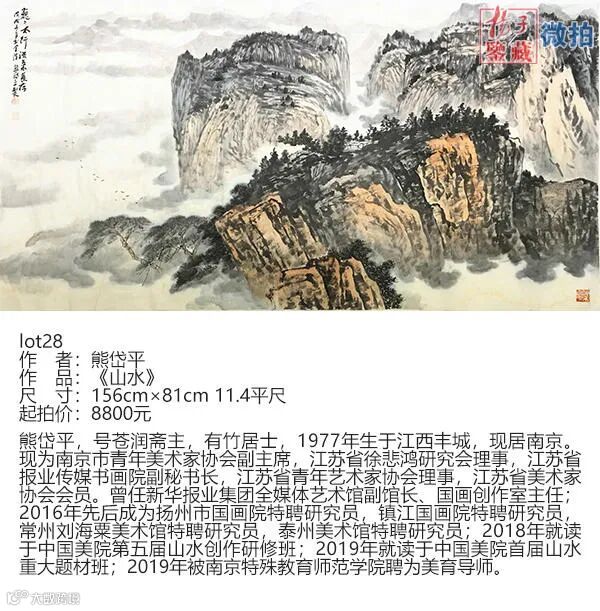 扬子
鉴藏
微拍
巍巍太行
lot28
作 者：熊岱平
作 品：《山水》
尺 寸：156cm×81cm 11.4平尺
起拍价：8800元
熊岱平，号苍润斋主，有竹居士，1977年生于江西丰城，现居南京。
现为南京市青年美术家协会副主席，江苏省徐悲鸿研究会理事，江苏省
报业传媒书画院副秘书长，江苏省青年艺术家协会理事，江苏省美术家
协会会员。曾任新华报业集团全媒体艺术馆副馆长、国画创作室主任；
2016年先后成为扬州市国画院特聘研究员，镇江国画院特聘研究员，
常州刘海粟美术馆特聘研究员，泰州美术馆特聘研究员；2018年就读
于中国美院第五届山水创作研修班；2019年就读于中国美院首届山水
重大题材班；2019年被南京特殊教育师范学院聘为美育导师。
大数跨境